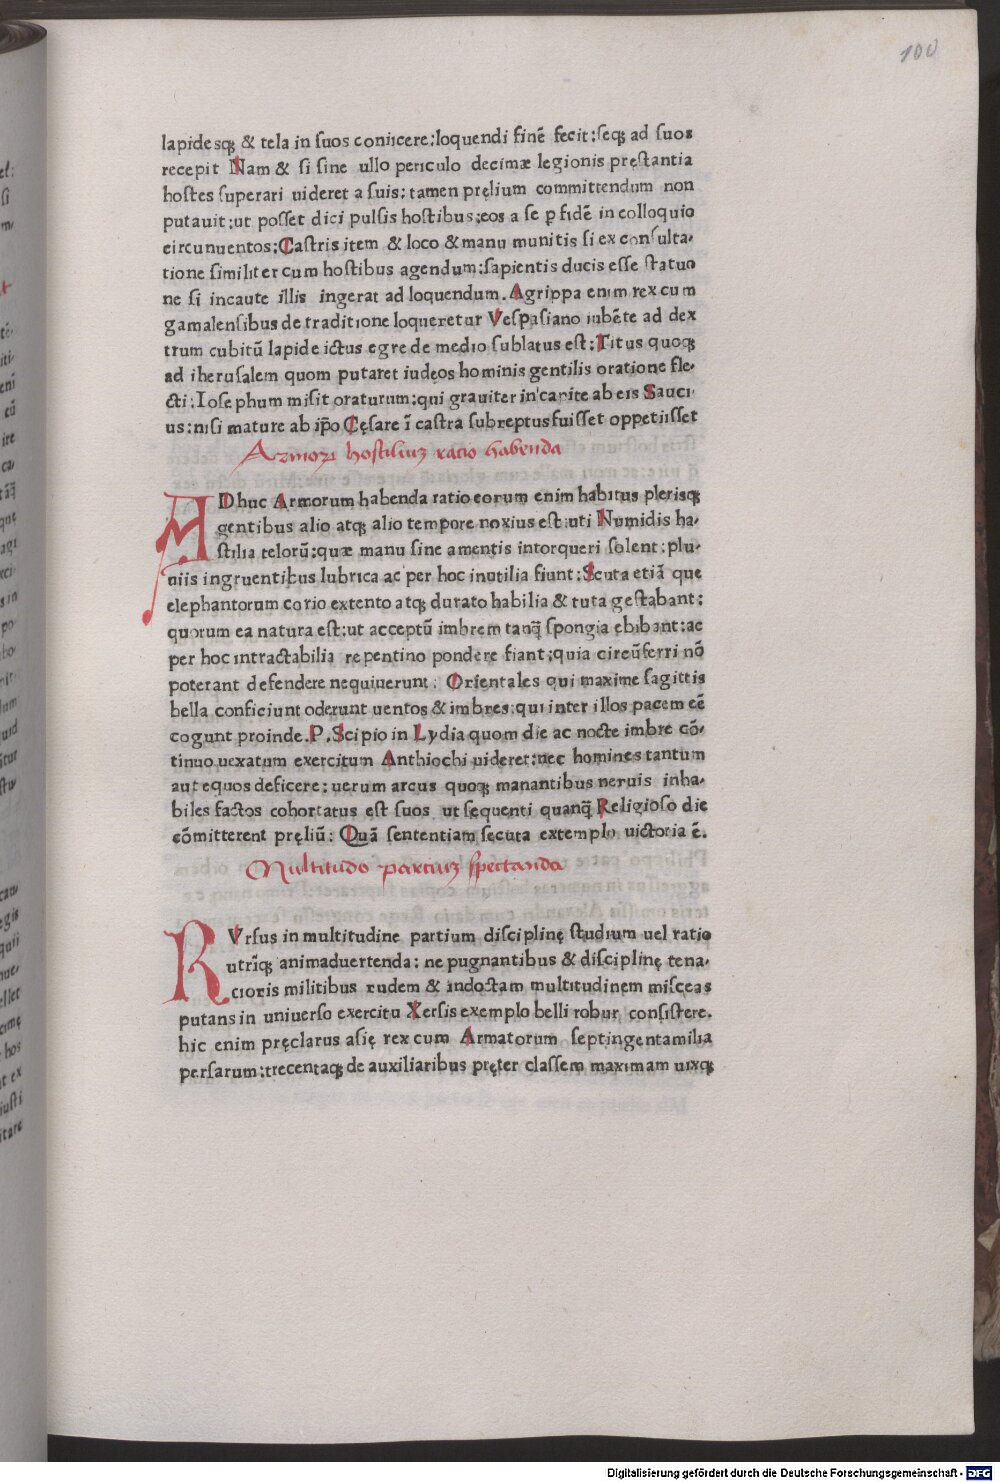 100
lapidesqꝫ & tela in ſuos coniicere:loquendi finē fecit:ſeqꝫ ad ſuos
recepit Nam & ſi ſine ullo periculo decimæ legionis pręſtantia
hoſtes ſuperari uideret a ſuis: tamen pręlium committendum non
putauit:ut poſſet dici pulſis hoſtibus:eos a ſe ꝑ fidē in colloquio
circunuentos:Caſtris item & loco & manu munitis ſi ex conſulta-
tione ſimiliter cum hoſtibus agendum:ſapientis ducis eſſe ſtatuo
ne ſi incaute illis ingerat ad loquendum. Agrippa enim rex cum
gamalenſibus de traditione loqueretur Veſpaſiano iubēte ad dex
trum cubitū lapide ictus egre de medio ſublatus eſt:Titus quoqꝫ
ad iheruſalem quom putaret iudęos hominis gentilis oratione fle-
cti:Ioſephum miſit oraturum:qui grauiter in capite ab eis Sauci-
us:niſi mature ab ip̄o Cęſare ī caſtra ſubreptus fuiſſet oppetiiſſet
Armoꝝ hoſtiliuꝫ ratio habenda
ADhuc Armorum habenda ratio eorum enim habitus pleriſqꝫ
gentibus alio atqꝫ alio tempore noxius eſt:uti Numidis ha-
ſtilia telorū:quæ manu ſine amentis intorqueri ſolent:plu-
uiis ingruentibus lubrica ac per hoc inutilia fiunt:Scuta etiā que
elephantorum corio extento atqꝫ durato habilia & tuta geſtabant:
quorum ea natura eſt:ut acceptū imbrem tanq̄ ſpongia ebibant:ac
per hoc intractabilia repentino pondere fiant:quia circūferri nō
poterant defendere nequiuerunt: Orientales qui maxime ſagittis
bella conficiunt oderunt uentos & imbres:qui inter illos pacem eē
cogunt proinde.P.Scipio in Lydia quom die ac nocte imbre cō-
tinuo uexatum exercitum Anthiochi uideret:nec homines tantum
aut equos deficere:uerum arcus quoqꝫ manantibus neruis inha-
biles factos cohortatus eſt ſuos ut ſequenti quanq̄ Religioſo die
cōmitterent pręliū: Quā ſententiam ſecuta extemplo uictoria ē.
Multitudo partiuꝫ ſpectanda
RVrſus in multitudine partium diſciplinę ſtudium uel ratio
utriqꝫ animaduertenda: ne pugnantibus & diſciplinę tena-
cioris militibus rudem & indoctam multitudinem miſceas
putans in uniuerſo exercitu Xerſis exemplo belli robur conſiſtere.
hic enim pręclarus aſię rex cum Armatorum ſeptingentamilia
perſarum:trecentaqꝫ de auxiliaribus pręter claſſem maximam uixqꝫ
Digitalisierung gefördert durch die Deutsche Forschungsgemeinschaft - DFG